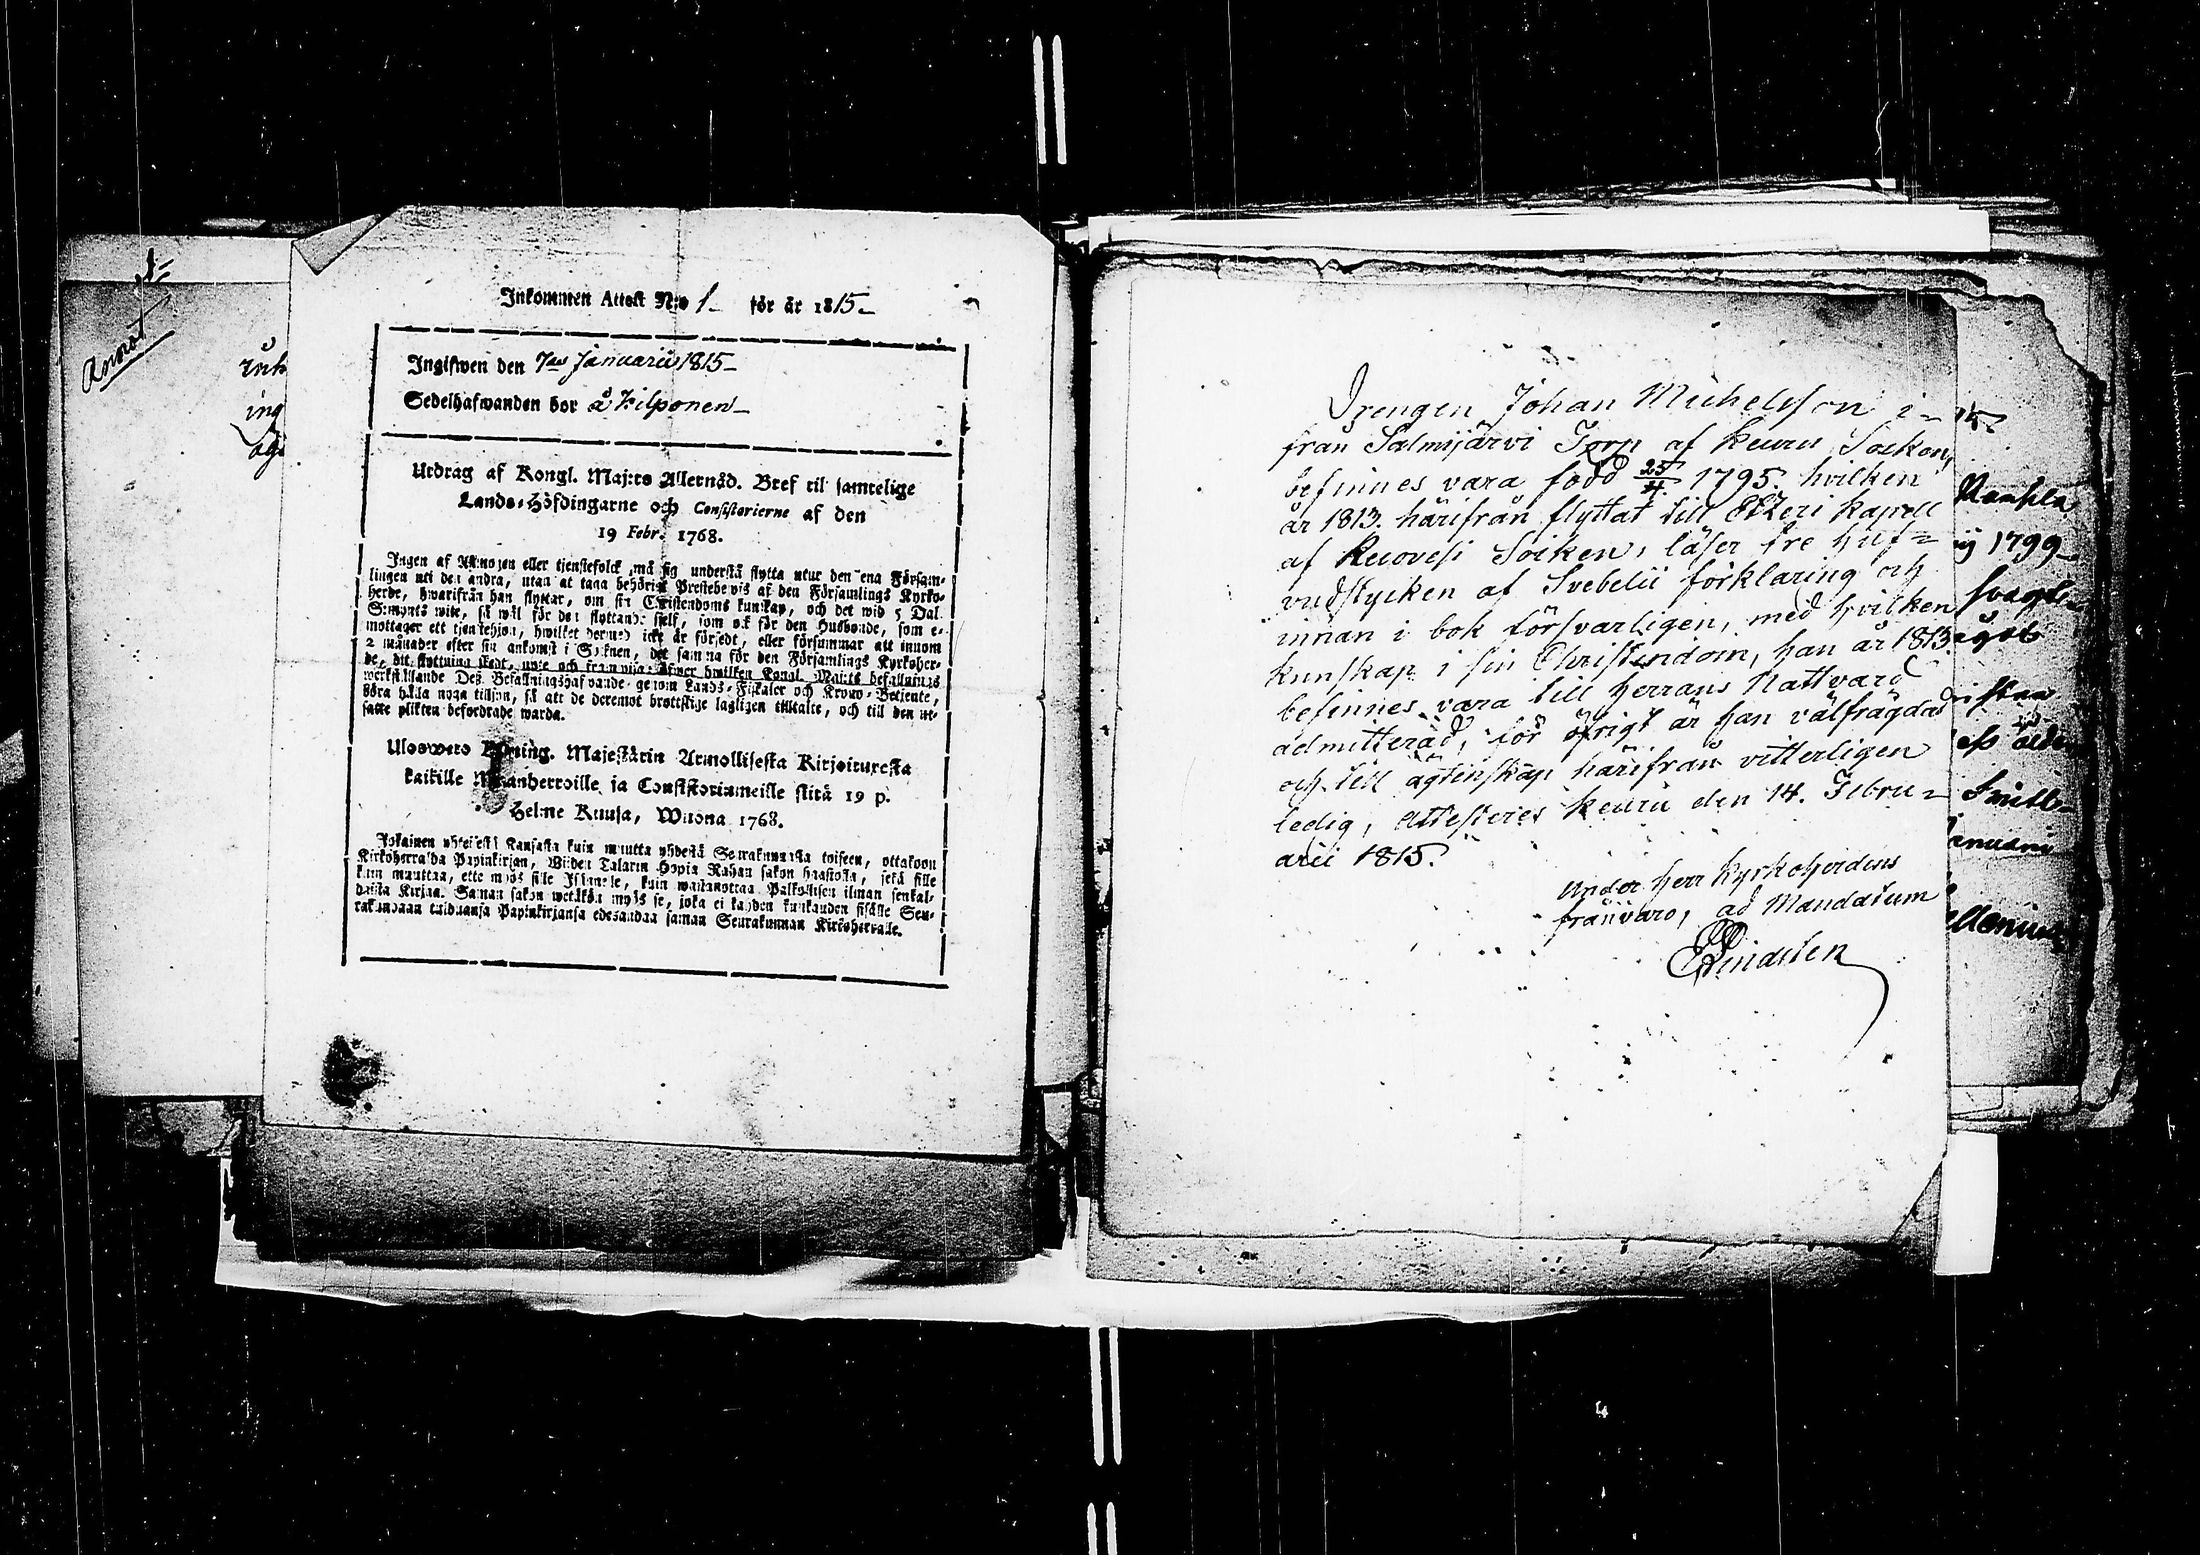 Annot
1=
Inkommen Attest N:o 1_ för år 1815_
Ingifwen den 7de Januarii 1815_
Sedelhafwanden bor å Kilponen_
Utdrag af Kongl. Maj:ts Allernåd. Bref til samtelige
Lands-Höfdingarne och Consistorierne af den
19 Febr. 1768.
Ingen af Allmogen eller tjenstefolck må sig understå flytta utur den ena Försam-
lingen uti den andra, utan at taga behörigt Prestebewis af den Församlings Kyrko-
herde, hwarifrån han flyttar, om sin Christendoms kunskap, och det wid 5 Dal.
S:mynts wite, så wäl för den flyttande sjelf, som ock för den Husbonde, som e-
mottager ett tjenstehjon, hwilket dermed icke är försedt, eller försummar att innom
2 månader efter sin ankomst i Soknen, det samma för den Församlings Kyrkoher-
de, dit flyttning skedt, upte och framwisa: Öfwer hwilken Kongl. Maj:ts befallnings
werkställande Deß Befallningshafwande genom Lands-Fiskaler och Krono-Betjente,
böra hålla noga tillsyn, så att de deremot brottslige lagligen tilltalte, och till den ut-
satte plikten befordrade warda.
Ulosweto Koning. Majestätin Armollisesta Kirjoituxesta
kaikille Maanherroille ja Consistoriumeille siitä 19 p.
Helme Kuusa, Wuona 1768.
Jokainen yhteisestä Kansasta kuin muutta yhdestä Seurakunnasta toiseen, ottakoon
Kirkoherralda Papinkirjan, Wiiden Talarin Hopia Rahan sakon haastolla, sekä sille
kuin muuttaa, ette myös sille Isännelle, kuin wastanottaa Palkollisen ilman senkal-
daista Kirjaa. Saman sakon wetäkön myös se, joka ei kahden kuukauden sisälle Seu-
rakundaan tulduansa Papinkirjansa edesandaa saman Seurakunnan Kirkoherralle.
Drengen Johan Michelsson i=
från Salmijärvi Torp af Keuru Socken,
befinnes vara född 25/4. 1795. hvilken
år 1813. härifrån flyttat till Etzeri Kapell
af Ruovesi Soiken, läser tre huf=
vudstycken af Svebelii förklaring och
innan i bok försvarligen, med hvilken
kunskap i sin Christendom, han år 1813.
befinnes vara till Herrans Nattvard
admitterad, för öfrigt är han välfrägdad
och till ägtenskap härifrån vitterligen
ledig, attesteres Keuru den 14. Febru=
arii 1815.
Under Herr Kyrkoherdens
frånvaro, ad Mandatum
Lindsten
ij 1799_